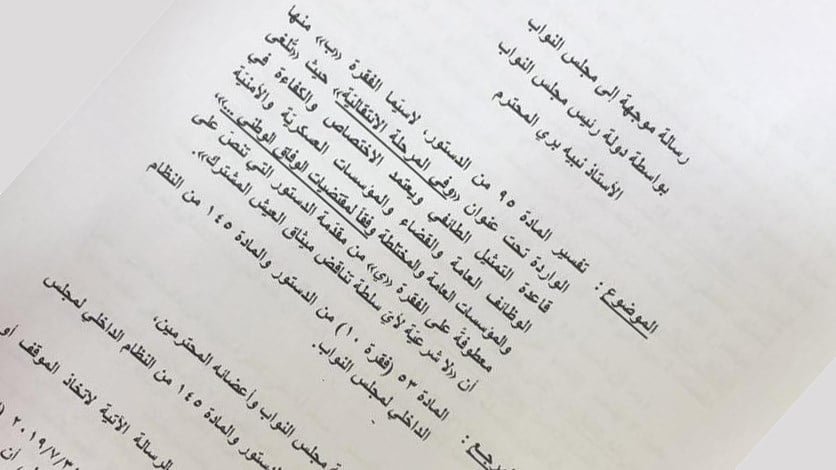 رسالة موجهة إلى مجلس النواب
بواسطة دولة رئيس مجلس النواب
الأستاذ نبيه بري المحترم
الموضوع: تفسير المادة ٩٥ من الدستور، لاسيما الفقرة «ب» منها
الواردة تحت عنوان «وفي المرحلة الانتقالية» حيث «تُلغى
قاعدة التمثيل الطائفي ويعتمد الاختصاص والكفاءة في
الوظائف العامة والقضاء والمؤسسات العسكرية والأمنية
والمؤسسات العامة والمختلطة وفقاً لمقتضيات الوفاق الوطني...»،
معطوفة على الفقرة «ي» من مقدمة الدستور التي تنص على
أن «لا شرعية لأي سلطة تناقض ميثاق العيش المشترك».
المادة ٥٣ (فقرة ١٠) من الدستور والمادة ١٤٥ من النظام
الداخلي لمجلس النواب.
مجلس النواب وأعضائه المحترمين،
والمادة ١٤٥ من النظام الداخلي لمجلس
الرسالة الآتية لاتخاذ الموقف أو